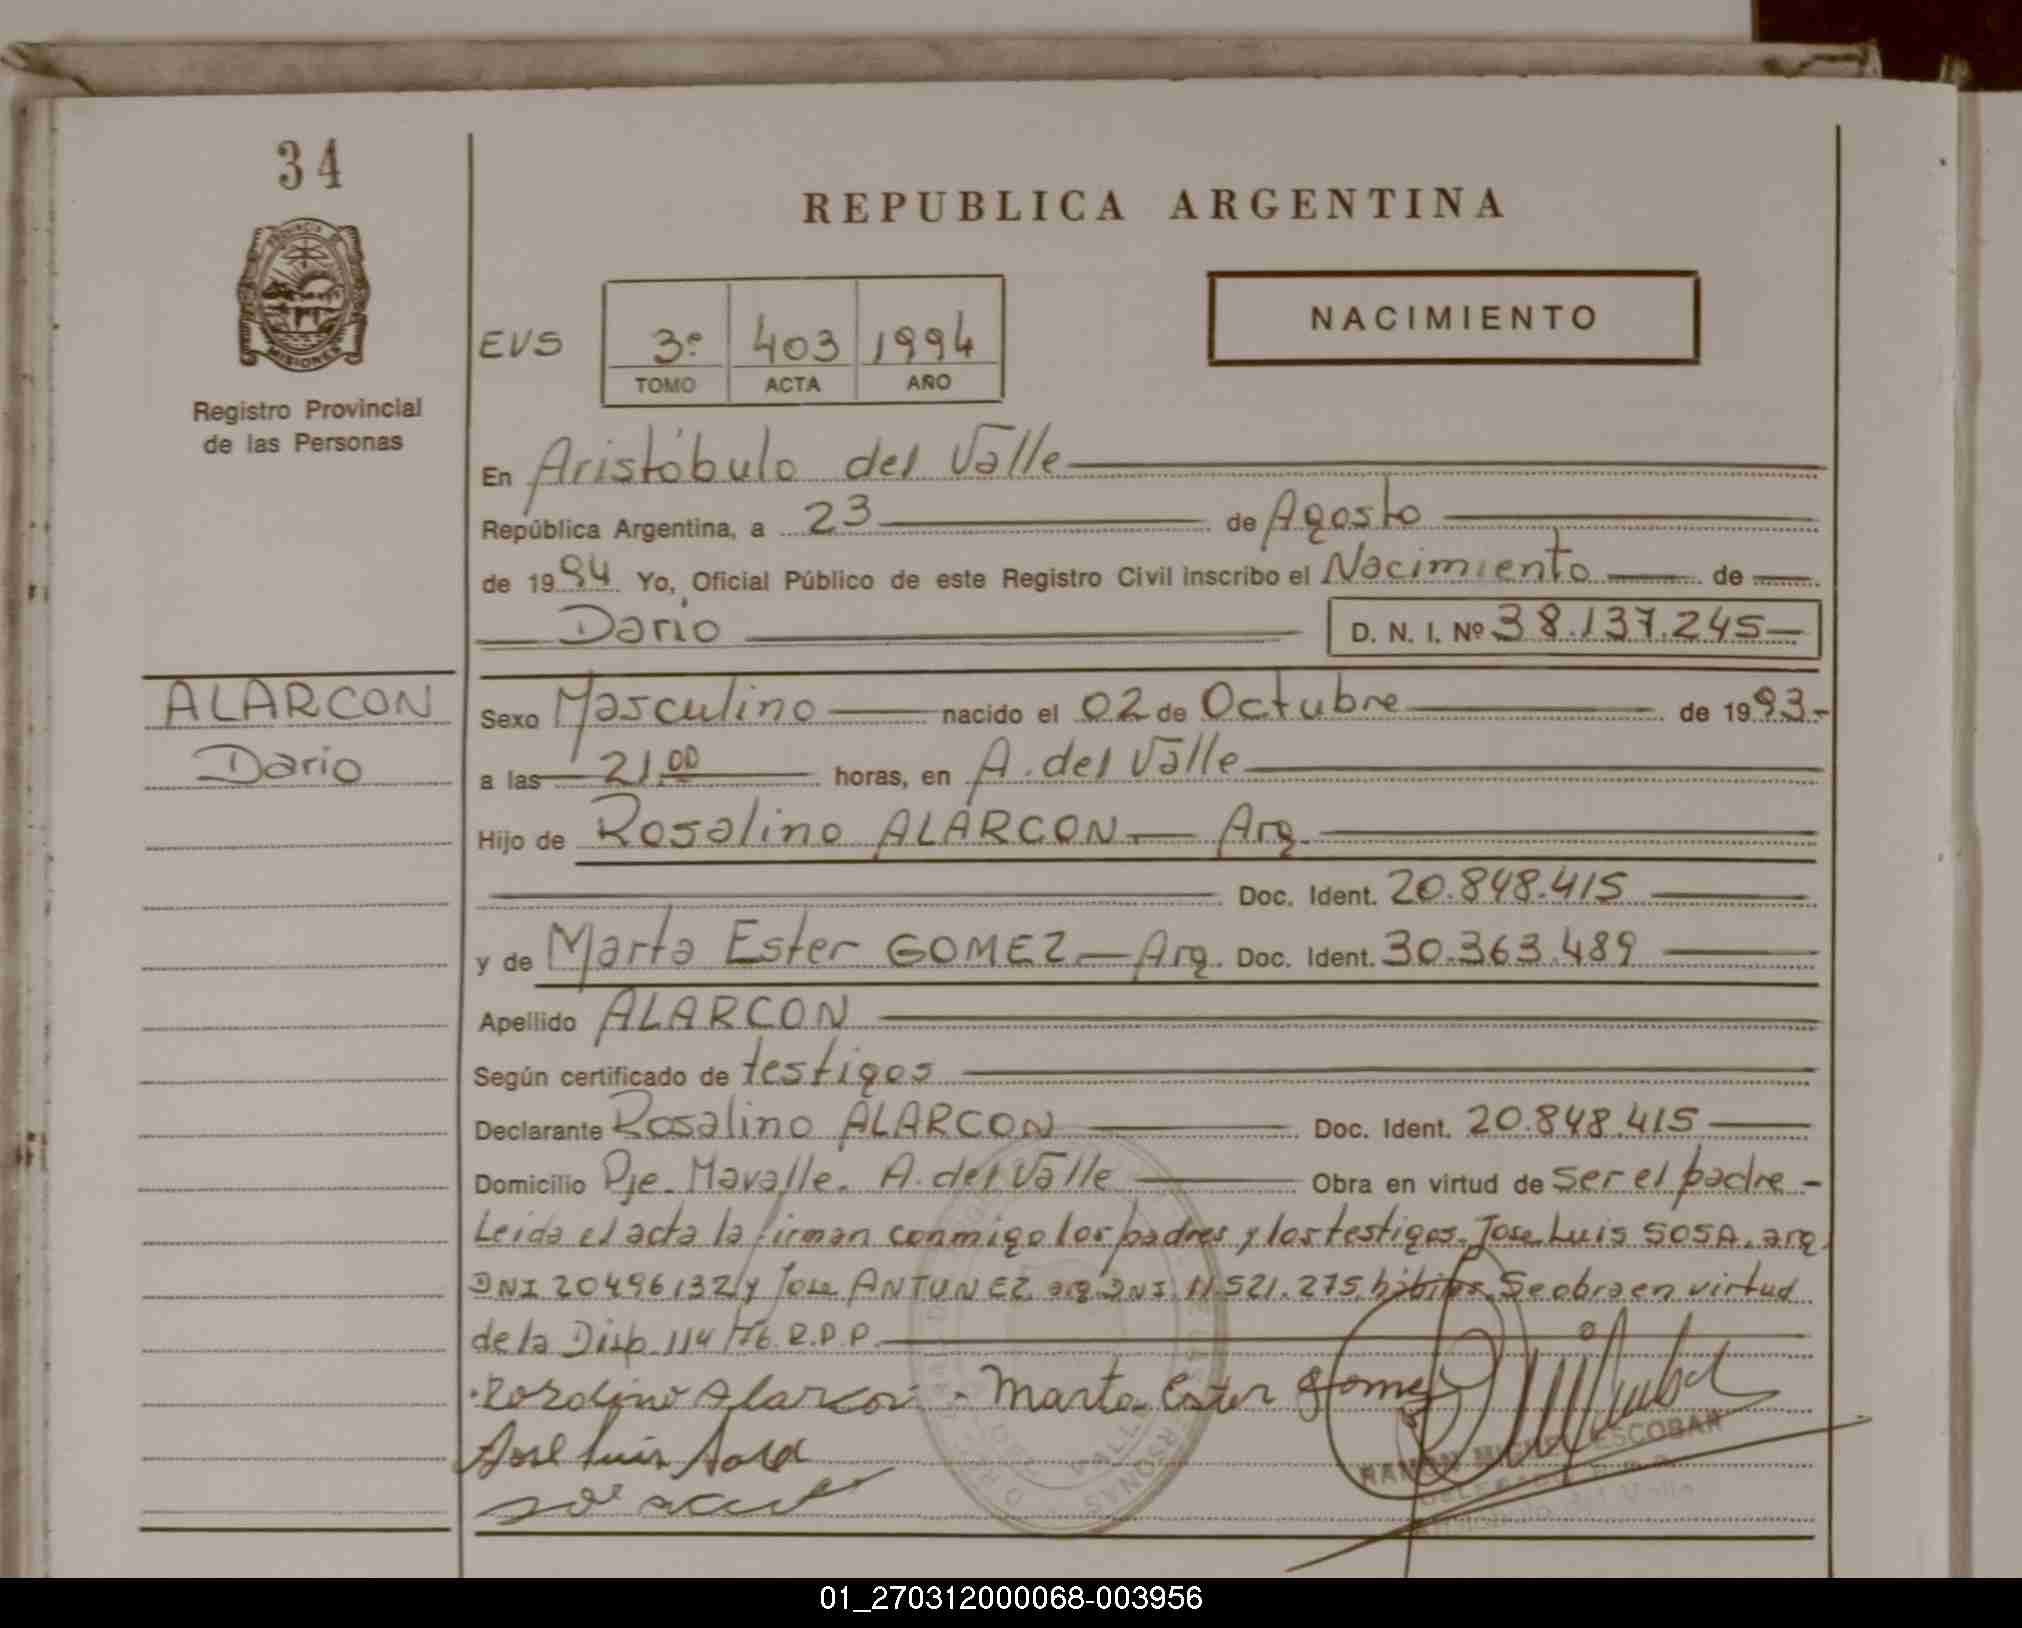 34
REPUBLICA ARGENTINA
PROVINCIA DE
MISIONES
NACIMIENTO
EVS 3º 403 1994
TOMO ACTA AÑO
Registro Provincial
de las Personas
En Aristóbulo del Valle
República Argentina, a 23 de Agosto
de 1994 Yo, Oficial Público de este Registro Civil inscribo el Nacimiento de
Dario D. N. I. Nº 38.137.245
ALARCON
Dario
Sexo Masculino nacido el 02 de Octubre de 1993.-
a las 21.00 horas, en A. del Valle
Hijo de Rosalino ALARCON — Arg.
Doc. Ident. 20.848.415
y de Marta Ester GOMEZ — Arg. Doc. Ident. 30.363.489
Apellido ALARCON
Según certificado de testigos
Declarante Rosalino ALARCON Doc. Ident. 20.848.415
Domicilio Pje. Mavalle. A. del Valle Obra en virtud de ser el padre -
Leida el acta la firman conmigo los padres y los testigos. Jose Luis SOSA. arg
DNI 20496132 y Jose ANTUNEZ arg DNI 11.521.275 hábiles. Se obra en virtud
de la Disp. 114/76. R.P.P.
Rosalino Alarcon - Marta Ester Gomez
José Luis Sosa
RAMON MIGUEL ESCOBAR
01_270312000068-003956